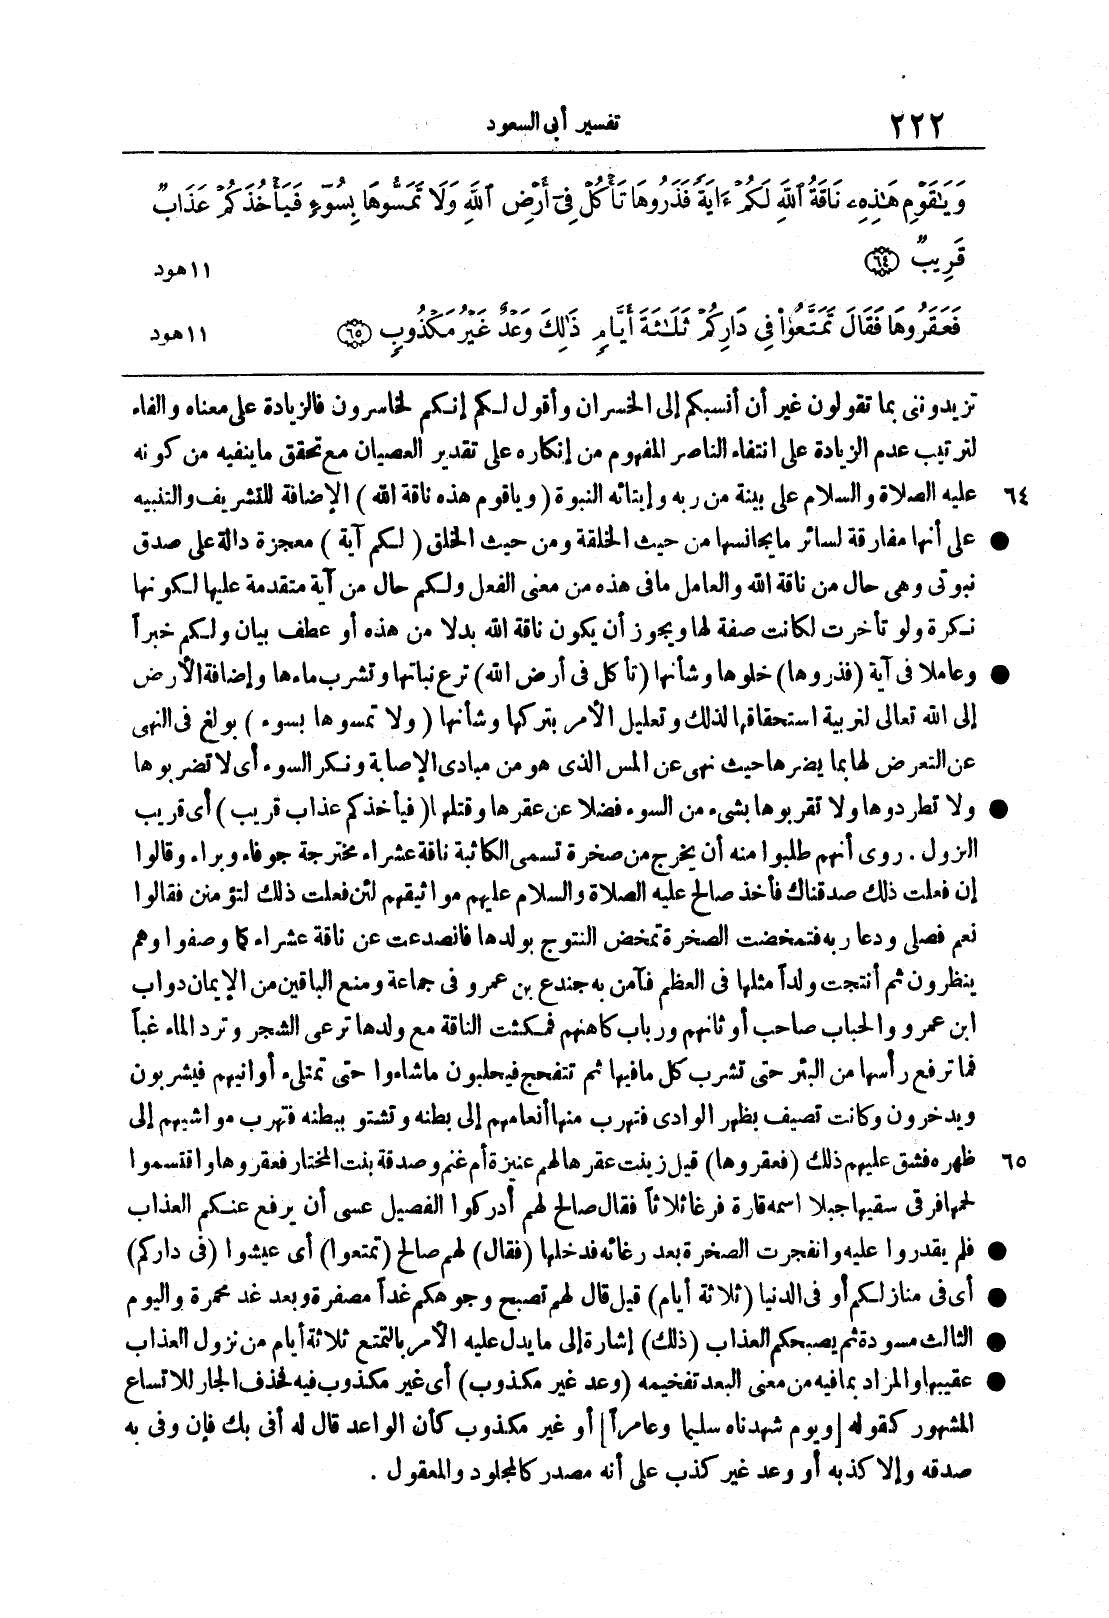 ٢٢٢ تفسير أبى السعود
وَيَٰقَوْمِ هَٰذِهِۦ نَاقَةُ ٱللَّهِ لَكُمْ ءَايَةً فَذَرُوهَا تَأْكُلْ فِىٓ أَرْضِ ٱللَّهِ وَلَا تَمَسُّوهَا بِسُوٓءٍ فَيَأْخُذَكُمْ عَذَابٌ
قَرِيبٌ ٦٤ ١١ هود
فَعَقَرُوهَا فَقَالَ تَمَتَّعُوا۟ فِى دَارِكُمْ ثَلَٰثَةَ أَيَّامٍ ذَٰلِكَ وَعْدٌ غَيْرُ مَكْذُوبٍ ٦٥ ١١ هود
تزيدوننى بما تقولون غير أن أنسبكم إلى الخسران وأقول لكم إنكم لخاسرون فالزيادة على معناه والفاء
لترتيب عدم الزيادة على انتفاء الناصر المفهوم من إنكاره على تقدير العصيان مع تحقق ما ينفيه من كونه
٦٤ عليه الصلاة والسلام على بينة من ربه وإيتائه النبوة ( وياقوم هذه ناقة الله ) الإضافة للتشريف والتنبيه
● على أنها مفارقة لسائر ما يجانسها من حيث الخلقة ومن حيث الخلق ( لكم آية ) معجزة دالة على صدق
نبوتى وهى حال من ناقة الله والعامل مافى هذه من معنى الفعل ولكم حال من آية متقدمة عليها لكونها
نكرة ولو تأخرت لكانت صفة لها ويجوز أن يكون ناقة الله بدلا من هذه أو عطف بيان ولكم خبراً
● وعاملا فى آية (فذروها) خلوها وشأنها (تأكل فى أرض الله) ترع نباتها وتشرب ماءها وإضافة الأرض
إلى الله تعالى لتربية استحقاقها لذلك وتعليل الأمر بتركها وشأنها ( ولا تمسوها بسوء ) بولغ فى النهى
عن التعرض لها بما يضرها حيث نهى عن المس الذى هو من مبادى الإصابة ونكر السوء أى لا تضربوها
● ولا تطردوها ولا تقربوها بشىء من السوء فضلا عن عقرها وقتلها ( فيأخذكم عذاب قريب ) أى قريب
النزول . روى أنهم طلبوا منه أن يخرج من صخرة تسمى الكاثبة ناقة عشراء مخترجة جوفاء وبراء وقالوا
إن فعلت ذلك صدقناك فأخذ صالح عليه الصلاة والسلام عليهم مواثيقهم لئن فعلت ذلك لتؤمنن فقالوا
نعم فصلى ودعا ربه فتمخضت الصخرة تمخض النتوج بولدها فانصدعت عن ناقة عشراء كما وصفوا وهم
ينظرون ثم أنتجت ولداً مثلها فى العظم فآمن به جندع بن عمرو فى جماعة ومنع الباقين من الإيمان دواب
ابن عمرو والحباب صاحب أوثانهم ورباب كاهنهم فمكثت الناقة مع ولدها ترعى الشجر وترد الماء غباً
فما ترفع رأسها من البئر حتى تشرب كل ما فيها ثم تتفحج فيحلبون ماشاءوا حتى تمتلىء أوانيهم فيشربون
ويدخرون وكانت تصيف بظهر الوادى فتهرب منها أنعامهم إلى بطنه وتشتو ببطنه فتهرب مواشيهم إلى
٦٥ ظهره فشق عليهم ذلك (فعقروها) قيل زينت عقرها لهم عنيزة أم غنم وصدقة بنت المختار فعقروها واقتسموا
لحمها فرقى سقيها جبلا اسمه قارة فرغا ثلاثاً فقال صالح لهم أدركوا الفصيل عسى أن يرفع عنكم العذاب
● فلم يقدروا عليه وانفجرت الصخرة بعد رغائه فدخلها (فقال) لهم صالح (تمتعوا) أى عيشوا (فى داركم)
● أى فى منازلكم أو فى الدنيا (ثلاثة أيام) قيل قال لهم تصبح وجوهكم غداً مصفرة وبعد غد محمرة واليوم
● الثالث مسودة ثم يصبحكم العذاب (ذلك) إشارة إلى ما يدل عليه الأمر بالتمتع ثلاثة أيام من نزول العذاب
● عقيبها والمزاد بما فيه من معنى البعد تفخيمه (وعد غير مكذوب) أى غير مكذوب فيه فحذف الجار للاتساع
المشهور كقوله [ويوم شهدناه سليما وعامراً] أو غير مكذوب كأن الواعد قال له أفى بك فإن وفى به
صدقه وإلا كذبه أو وعد غير كذب على أنه مصدر كالمجلود والمعقول .